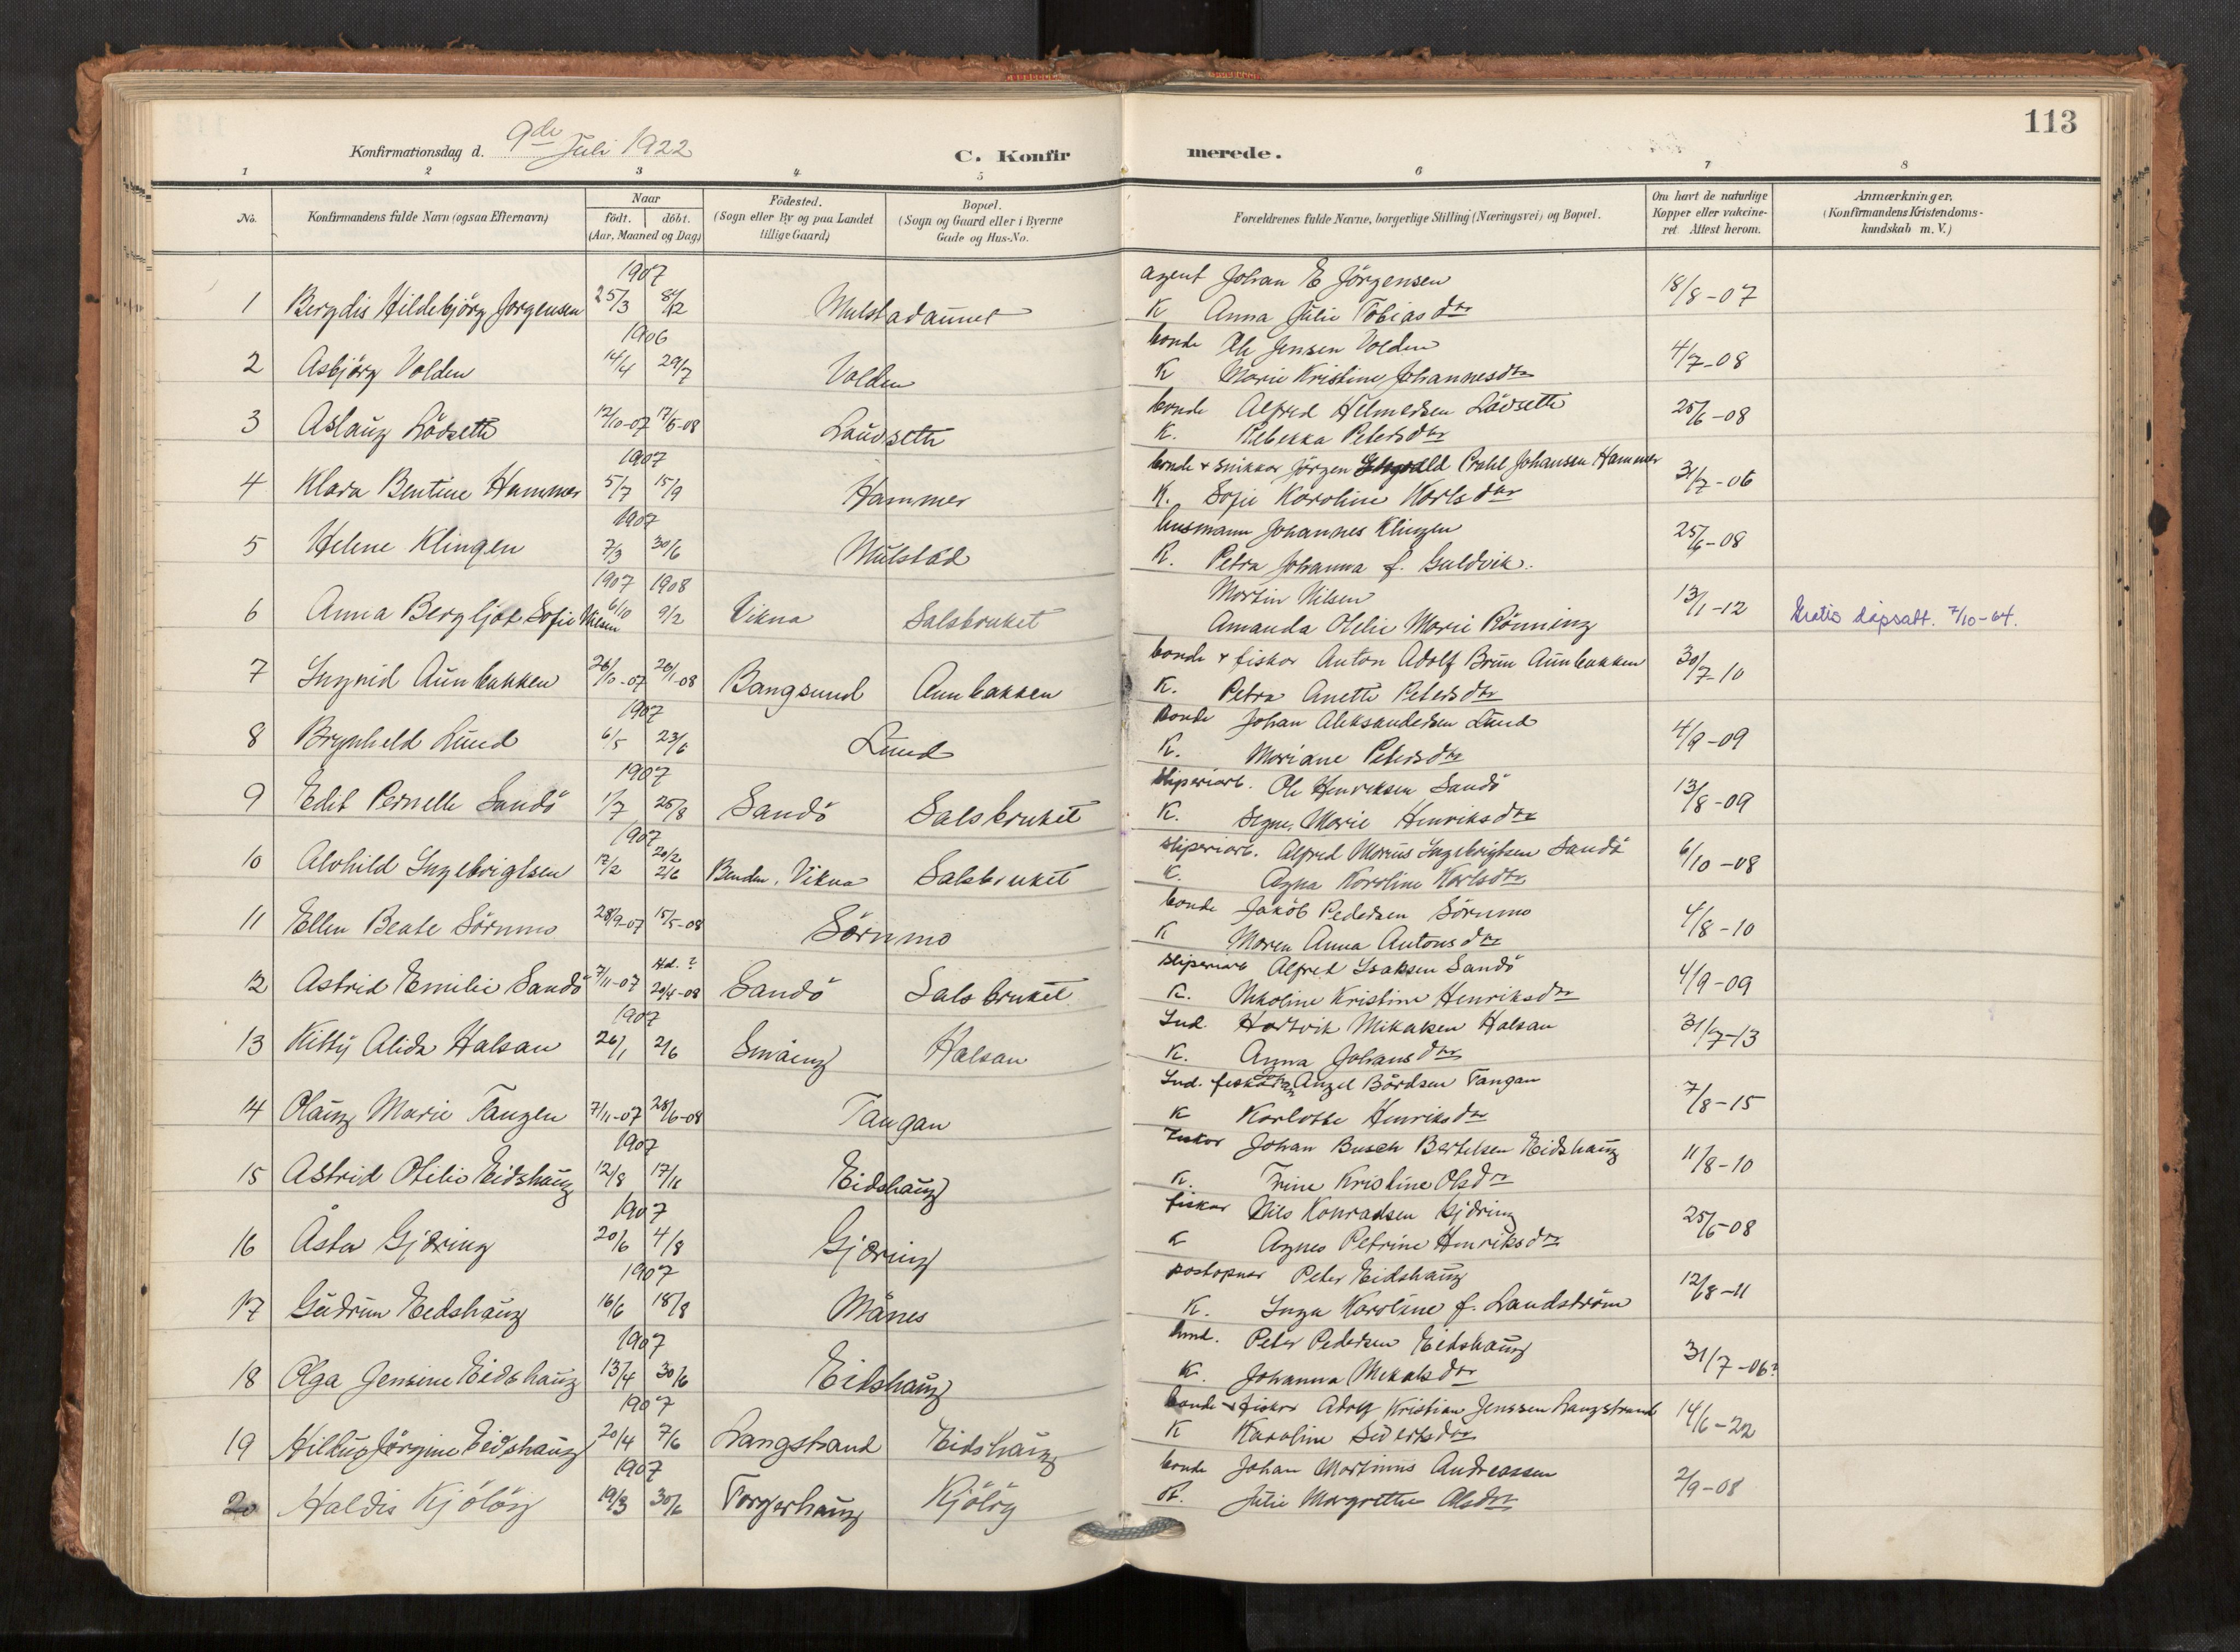 113
Konfirmationsdag d. 9de Juli 1922
C. Konfir merede.
1 2 3 4 5 6 7 8
No.
Konfirmandens fulde Navn (ogsaa Efternavn)
Naar
födt. döbt.
(Aar, Maaned og Dag)
Födested.
(Sogn eller By og paa Landet
tillige Gaard)
Bopæl.
(Sogn og Gaard eller i Byerne
Gade og Hus-No.
Forældrenes fulde Navne, borgerlige Stilling (Næringsvei) og Bopæl.
Om havt de naturlige
Kopper eller vakcine-
ret. Attest herom.
Anmærkninger,
(Konfirmandens Kristendoms-
kundskab m. V.)
1907
agent Johan E Jörgensen
1 Bergdis Hildebjörg Jorgensen 25/3 Mulstadaunet 18/8-07
K Anna Julie Tobiasdtr
1906
bonde Ole Jensen Volden
2 Asbjörg Volden 14/4 29/7 Volden 4/7-08
K Marie Kristine Johannesdtr
bonde Alfred Helmersen Lödseth
3 Aslaug Lödseth 12/10-07 17/5-08 Laudseth 25/6-08
K. Rebekka Petersdtr
1907
bonde & snikkar Jörgen Prahl Johansen Hammer
4 Klara Bentine Hammer 5/7 15/9 Hammer 31/7-06
K. Sofie Karoline Karlsdtr
1907
husmann Johannes Klingen
5 Helene Klingen 7/3 30/6 Mulstad 25/6-08
K. Petra Johanna f. Guldvik.
1907 1908
Martin Nilsen
6 Anna Bergljot Sofie Nilsen 6/10 9/2 Vikna Salsbruket 13/1-12 Gratis dåpsatt. 7/10-64.
Amanda Otelie Marie Rönning
bonde & fiskar Anton Adolf Brun Aunbakken
7 Ingrid Aunbakken 26/10-07 26/1-08 Bangsund Aunbakken 30/7-10
K. Petra Anette Petersdtr
1907
Bonde Johan Aleksandersen Lund
8 Brynheld Lund 6/5 23/6 Lund 4/9-09
K. Mariane Petersdtr
1907
Sliperiarb. Ole Henriksen Sandö
9 Edit Pernelle Sandö 1/7 25/8 Sandö Salsbruket 13/8-09
K. Signe Marie Henriksdtr
1907
Sliperiarb. Alfred Marius Ingebrigtsen Sandö
10 Alvhild Ingebrigtsen 17/2 20/2 2/6 Vikna Salsbruket 6/10-08
K. Agna Karoline Karlsdtr
bonde Jakob Pedersen Sörnmo
11 Ellen Beate Sörnmo 28/9-07 15/5-08 Sörnmo 4/8-10
K Maren Anna Antonsdtr
Hd. ?
Sliperiarb Alfred Isaksen Sandö
12 Astrid Emilie Sandö 7/11-07 20/4-08 Sandö Salsbruket 4/9-09
K. Nikoline Kristine Henriksdtr
1907
Ind. Hartvik Mikalsen Halsan
13 Kitty Alida Halsan 26/1 2/6 Halsan 31/7-13
K. Anna Johansdtr
Ind. fiskar Angel Bårdsen Tangan
14 Olaug Marie Tangen 7/11-07 28/6-08 Tangan 7/8-15
K Karlotte Henriksdtr
1907
fiskar Johan Busch Bertelsen Eidshaug
15 Astrid Otilie Eidshaug 12/8 17/11 Eidshaug 11/8-10
K. Trine Kristine Olsdtr
1907
fiskar Nils Konradsen Gjöring
16 Åsta Gjöring 20/6 4/8 Gjöring 25/6-08
K Agnes Petrine Henriksdtr
1907
postopnar Peter Eidshaug
17 Gudrun Eidshaug 16/6 18/8 Månes 12/8-11
K. Inga Karoline f. Landström
1907
Peter Pedersen Eidshaug
18 Olga Jensine Eidshaug 13/4 30/6 Eidshaug 31/7-06?
K. Johanna Mekalsdtr
1907
bonde & fiskar Adolf Kristian Jenssen Langstrand
19 Hildur Jörgine Eidshaug 20/4 7/6 Langstrand Eidshaug 14/6-22
K Karoline Sivertsdtr
1907
bonde Johan Martinus Andreassen
20 Haldis Kjölöy 19/3 30/6 Torgerhaug Kjölöy 2/9-08
K. Julie Margrethe Olsdtr